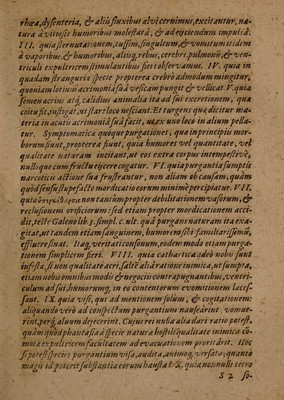 rhœa, dysenteria, & aliis fluxibus alvi cernimus, excitantur, na-
tura à vitiosis humoribus molestatâ, & ad ejiciendum impulsâ.
III. quia sternutationem, tussim, singultum, & vomitum itidem
à vaporibus, & humoribus, aliisq, rebus, cerebri, pulmonū, & ven-
triculi expultricem stimulantibus fieri observamus. IV. quia in
quadam stranguriæ specie propterea crebrò admodum mingitur,
quoniam lotium acrimoniâ suâ vesicam pungit & vellicat. V. quia
semen acrius atq, calidius animalia ita ad sui excretionem, quæ
coitu fit, instigat, ut stare loco nesciant. Et turgens quæ dicitur ma-
teria in aucto acrimoniâ suâ facit, ut ex uno loco in alium pella-
tur. Symptomatica quoque purgationes, quæ in principiis mor-
borum fiunt, propterea fiunt, quia humores vel quantitate, vel
qualitate naturam incitant, ut eos extra corpus intempestivè,
nulloq; cum fructu ejicere cogatur. VI. quia purgantia sumptu
narcotico actione sua frustrantur, non aliam ob causam, quàm
quòd sensu stupefacto mordicatio eorum minimè percipiatur. VII.
quia non tantum propter debilitationem vasorum, &
reclusionem orificiorum: sed etiam propter mordicationem acci-
dit, teste Galeno lib. 5. simpl. c. ult. quâ purgans naturam ita exa-
gitat, ut tandem etiam sanguinem, humorem sibi familiarissimū,
effluere sinat. Itaq, veritati consonum, eodem modo etiam purga-
tionem simplicem fieri. VIII. quia cathartica adeò nobis sunt
infesta, si non qualitate acri, saltē aliâ ratione inimica, ut sumpta,
etiam nobis omnibus modis & negociis contrapugnantibus, ventri-
culum ad sui, humorumq, in eo contentorum evomitionem laces-
sant. IX. quia visi, qui ad mentionem solùm, & cogitationem:
aliquando verò ad conspectum purgantium nausearint vomue-
rint, perq, alvum dejecerint. Cujus rei nulla alia dari ratio potest,
quàm quòd phantasia à specie naturæ hostili qualitate inimica co-
mota expultricem facultatem ad evacuationem proritârit. Hoc
si potest species purgantium visa, audita, animoq, versata; quantò
magis id poterit substantia eorum hausta? X. quia nonnulli sero
S 2 so-